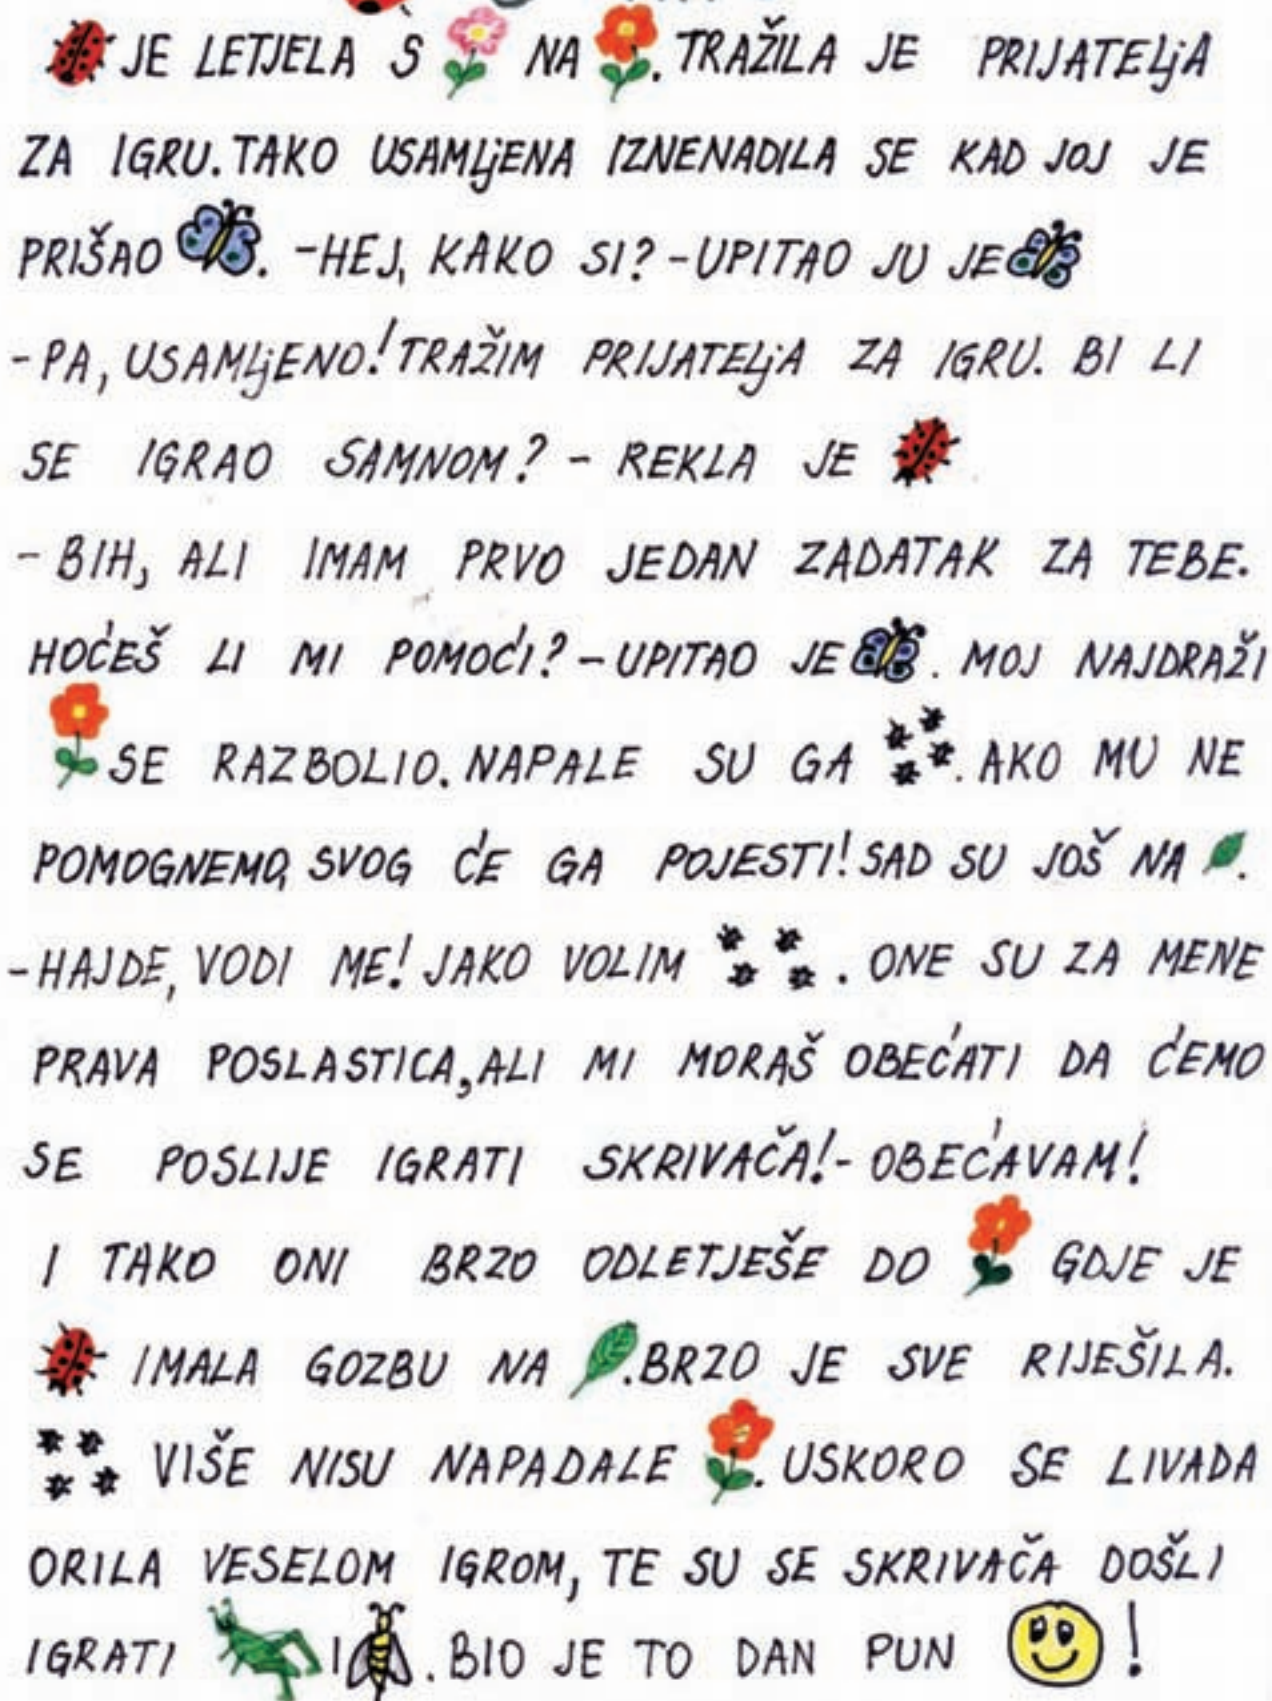 JE LETJELA S NA . TRAŽILA JE PRIJATELjA
ZA IGRU. TAKO USAMLjENA IZNENADILA SE KAD JOJ JE
PRIŠAO . -HEJ, KAKO SI? -UPITAO JU JE
-PA, USAMLjENO! TRAŽIM PRIJATELjA ZA IGRU. BI LI
SE IGRAO SAMNOM? - REKLA JE
- BIH, ALI IMAM PRVO JEDAN ZADATAK ZA TEBE.
HOĆEŠ LI MI POMOĆI? - UPITAO JE . MOJ NAJDRAŽI
SE RAZBOLIO. NAPALE SU GA . AKO MU NE
POMOGNEMO, SVOG ĆE GA POJESTI! SAD SU JOŠ NA .
-HAJDE, VODI ME! JAKO VOLIM . ONE SU ZA MENE
PRAVA POSLASTICA, ALI MI MORAŠ OBEĆATI DA ĆEMO
SE POSLIJE IGRATI SKRIVAČA! - OBEĆAVAM!
I TAKO ONI BRZO ODLETJEŠE DO GDJE JE
IMALA GOZBU NA . BRZO JE SVE RIJEŠILA.
VIŠE NISU NAPADALE . USKORO SE LIVADA
ORILA VESELOM IGROM, TE SU SE SKRIVAČA DOŠLI
IGRATI I . BIO JE TO DAN PUN !